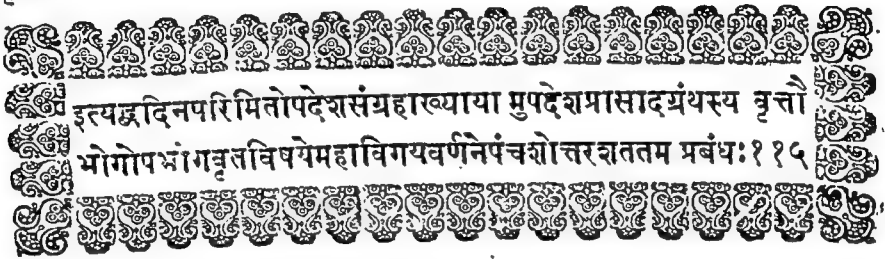 इत्यद्धदिनपरिमितोपदेशसंग्रहाख्याया मुपदेशप्रासादग्रंथस्य वृत्तौ
भोगोपभोगवृतविषयेमहाविगयवर्णनेपंचशोत्तरशततम प्रबंधः११५